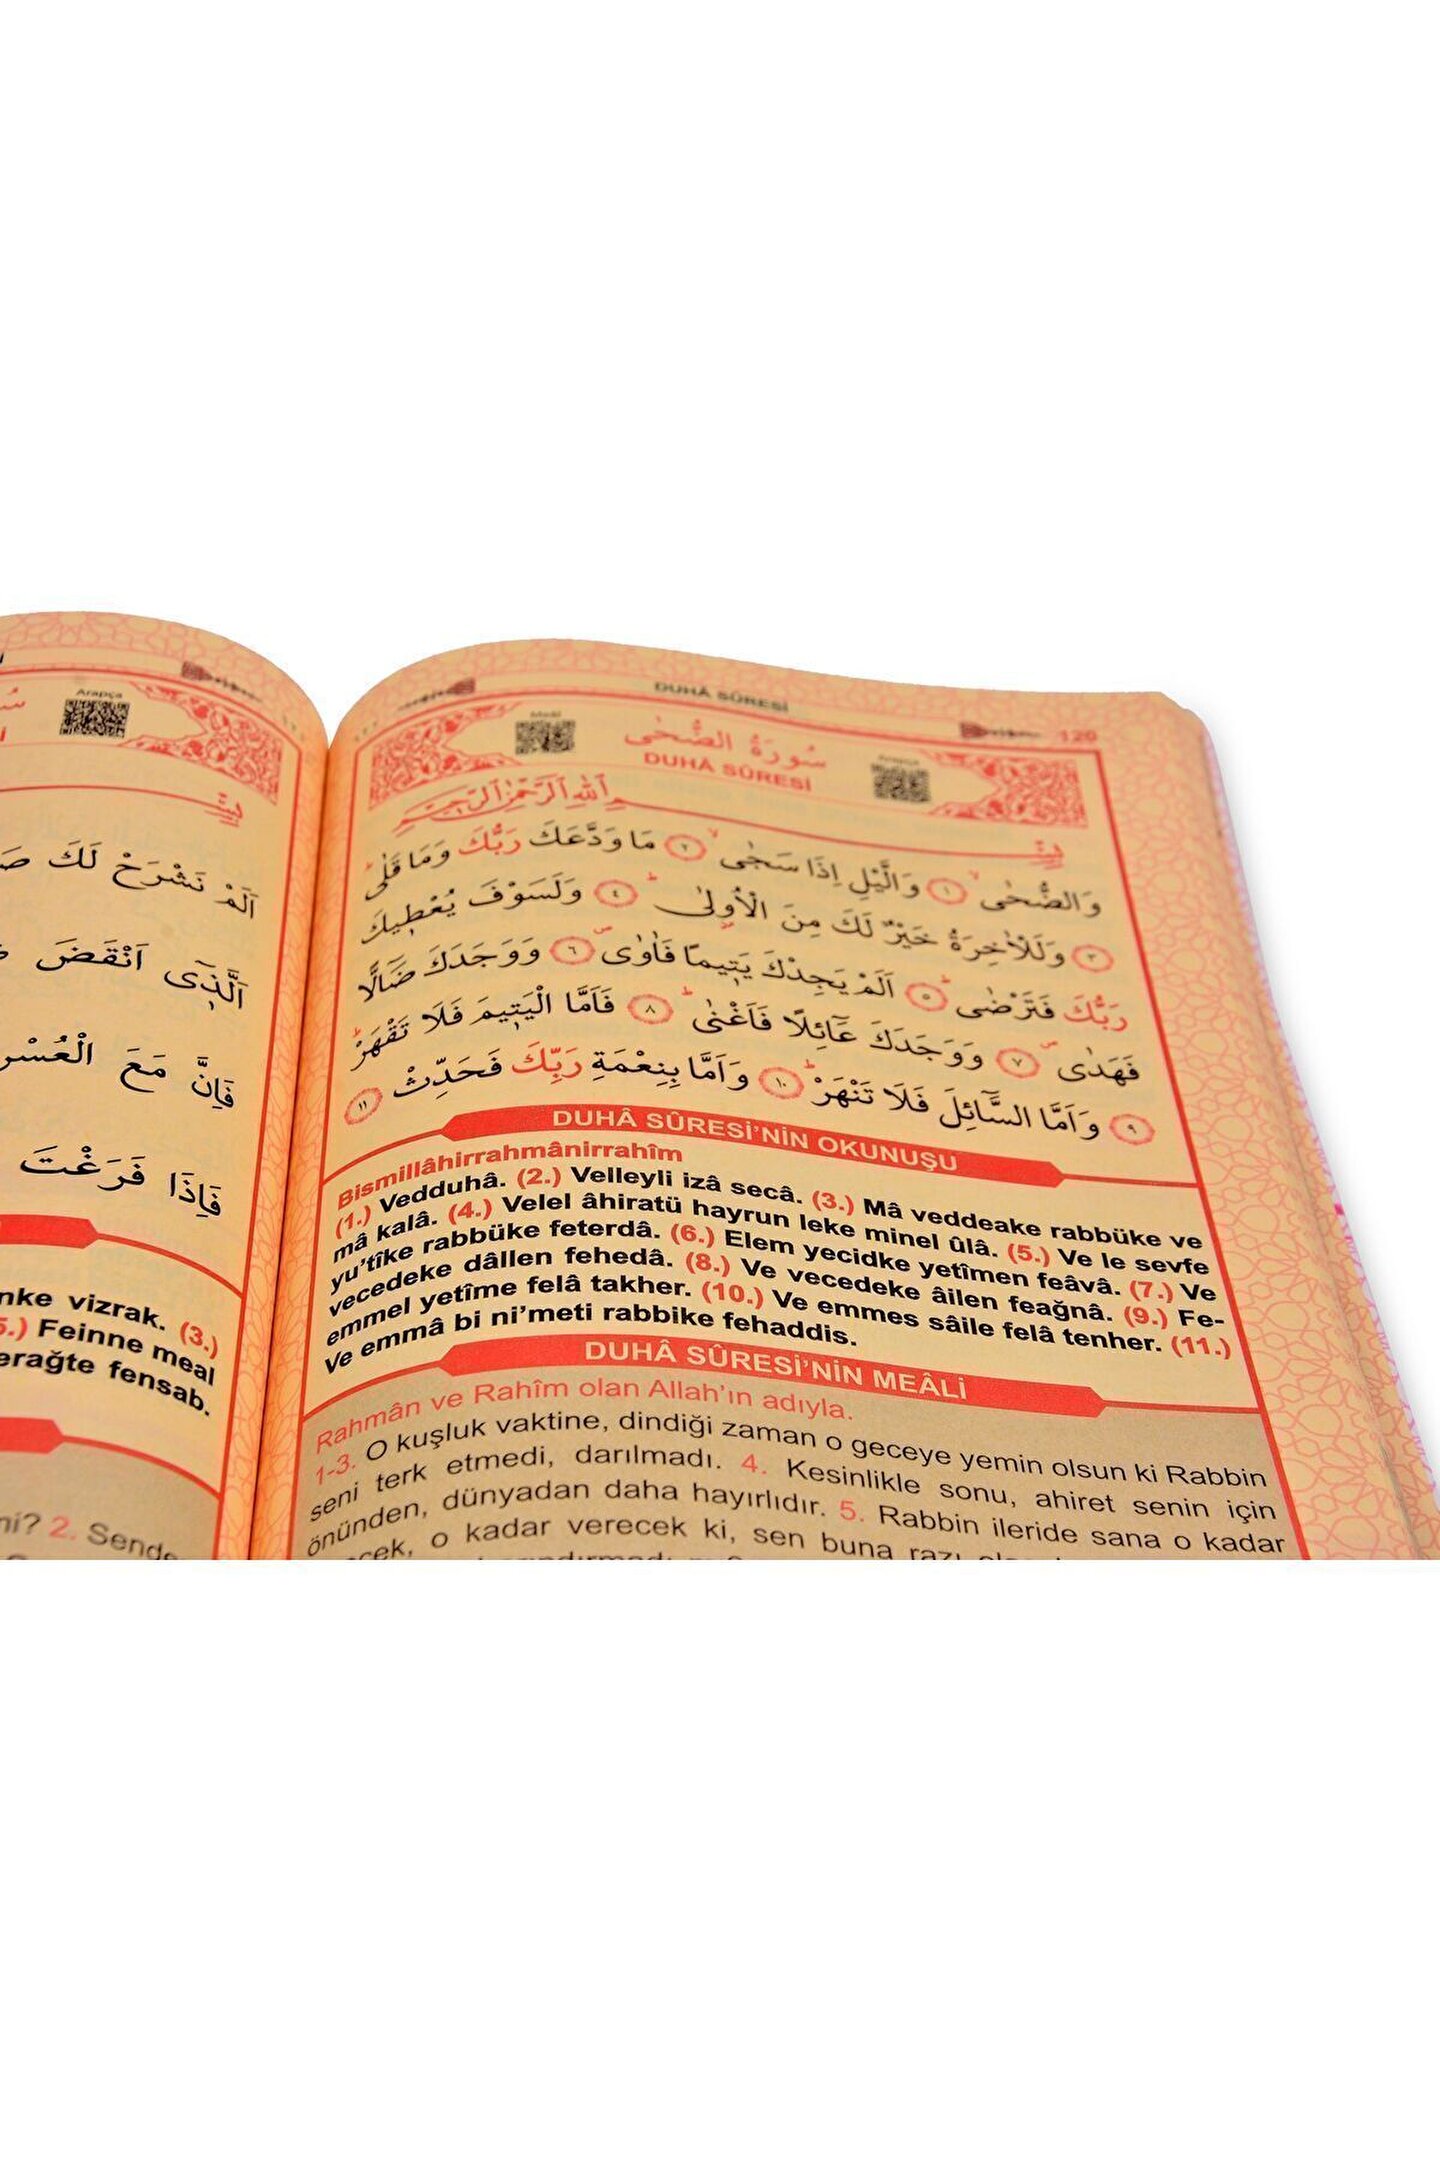 Arapça
اَلَمْ نَشْرَحْ لَكَ
اَلَّذ۪ٓى اَنْقَضَ
فَاِنَّ مَعَ الْعُسْرِ
فَاِذَا فَرَغْتَ
nke vizrak. (3.)
5.) Feinne meal
erağte fensab.
ni? 2. Sende
DUHÂ SÛRESİ
120
Meâl
سُورَةُ الضُّحٰى
Arapça
DUHÂ SÛRESİ
بِسْمِ اللهِ الرَّحْمٰنِ الرَّحِيمِ
وَالضُّحٰىۙ ﴿١﴾ وَالَّيْلِ اِذَا سَجٰىۙ ﴿٢﴾ مَا وَدَّعَكَ رَبُّكَ وَمَا قَلٰىۜ
﴿٣﴾ وَلَلْاٰخِرَةُ خَيْرٌ لَكَ مِنَ الْاُو۫لٰىۜ ﴿٤﴾ وَلَسَوْفَ يُعْط۪يكَ
رَبُّكَ فَتَرْضٰىۜ ﴿٥﴾ اَلَمْ يَجِدْكَ يَت۪يمًا فَاٰوٰىۖ ﴿٦﴾ وَوَجَدَكَ ضَٓالًّا
فَهَدٰىۖ ﴿٧﴾ وَوَجَدَكَ عَٓائِلًا فَاَغْنٰىۜ ﴿٨﴾ فَاَمَّا الْيَت۪يمَ فَلَا تَقْهَرْۜ
﴿٩﴾ وَاَمَّا السَّٓائِلَ فَلَا تَنْهَرْۜ ﴿١٠﴾ وَاَمَّا بِنِعْمَةِ رَبِّكَ فَحَدِّثْ ﴿١١﴾
DUHÂ SÛRESİ'NİN OKUNUŞU
Bismillâhirrahmânirrahîm
(1.) Vedduhâ. (2.) Velleyli izâ secâ. (3.) Mâ veddeake rabbüke ve
mâ kalâ. (4.) Velel âhiratü hayrun leke minel ûlâ. (5.) Ve le sevfe
yu'tîke rabbüke feterdâ. (6.) Elem yecidke yetîmen feâvâ. (7.) Ve
vecedeke dâllen fehedâ. (8.) Ve vecedeke âilen feağnâ. (9.) Fe-
emmel yetîme felâ takher. (10.) Ve emmes sâile felâ tenher. (11.)
Ve emmâ bi ni'meti rabbike fehaddis.
DUHÂ SÛRESİ'NİN MEÂLİ
Rahmân ve Rahîm olan Allah'ın adıyla.
1-3. O kuşluk vaktine, dindiği zaman o geceye yemin olsun ki Rabbin
seni terk etmedi, darılmadı. 4. Kesinlikle sonu, ahiret senin için
önünden, dünyadan daha hayırlıdır. 5. Rabbin ileride sana o kadar
ecek, o kadar verecek ki, sen buna razı